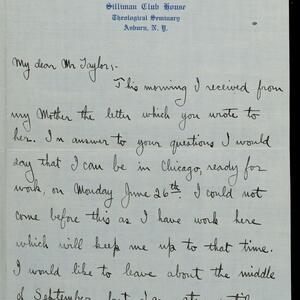 Silliman Club House
Theological Seminary
Auburn, N. Y.
My dear Mr Taylor;-
This morning I received from
my Mother the letter which you wrote to
her. In answer to your questions I would
say that I can be in Chicago, ready for
work, on Monday June 26th. I could not
come before this as I have work here
which will keep me up to that time.
I would like to leave about the middle
of September, but